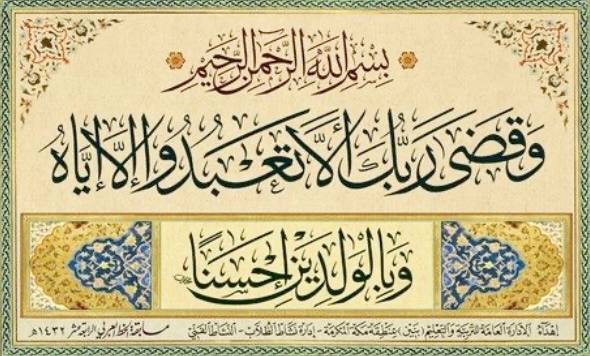 بِسْمِ اللَّهِ الرَّحْمَنِ الرَّحِيمِ
وَقَضَى رَبُّكَ أَلَّا تَعْبُدُوا إِلَّا إِيَّاهُ
وَبِالْوَلِدَيْنِ إِحْسَنًا
إهداء الإدارة العامة للتربية والتعليم (بنين) بمنطقة مكة المكرمة - إدارة نشاط الطلاب - النشاط الفني مسابقة الخط العربي الرابعة عشر ١٤٣٢هـ